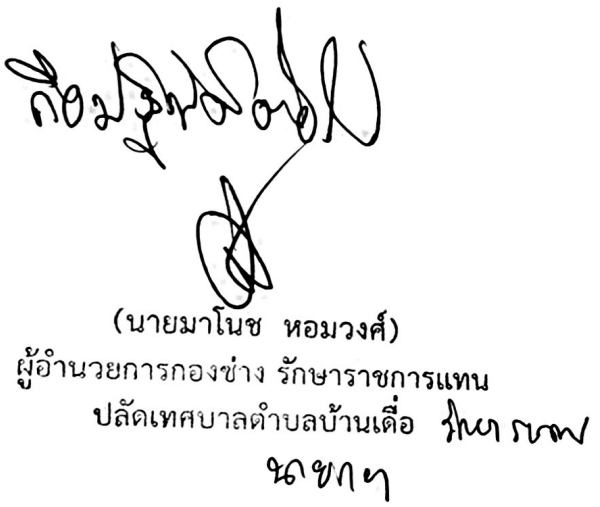 ถือปฏิบัติต่อไป
(นายมาโนช หอมวงศ์)
ผู้อำนวยการกองช่าง รักษาราชการแทน
ปลัดเทศบาลตำบลบ้านเดื่อ
นายกฯ